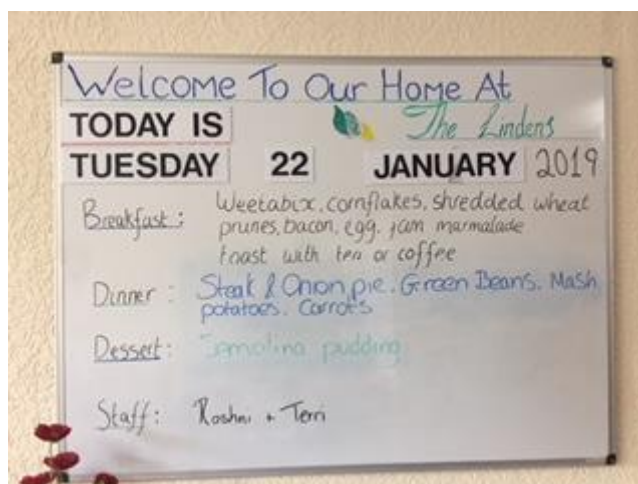 Welcome To Our Home At
TODAY IS The Lindens
TUESDAY 22 JANUARY 2019
Breakfast: Weetabix, cornflakes, shredded wheat
prunes, bacon, egg, jam marmalade
toast with tea or coffee
Dinner: Steak & Onion pie. Green Beans. Mash
potatoes. Carrots
Dessert: Semolina pudding
Staff: Roshni + Terri